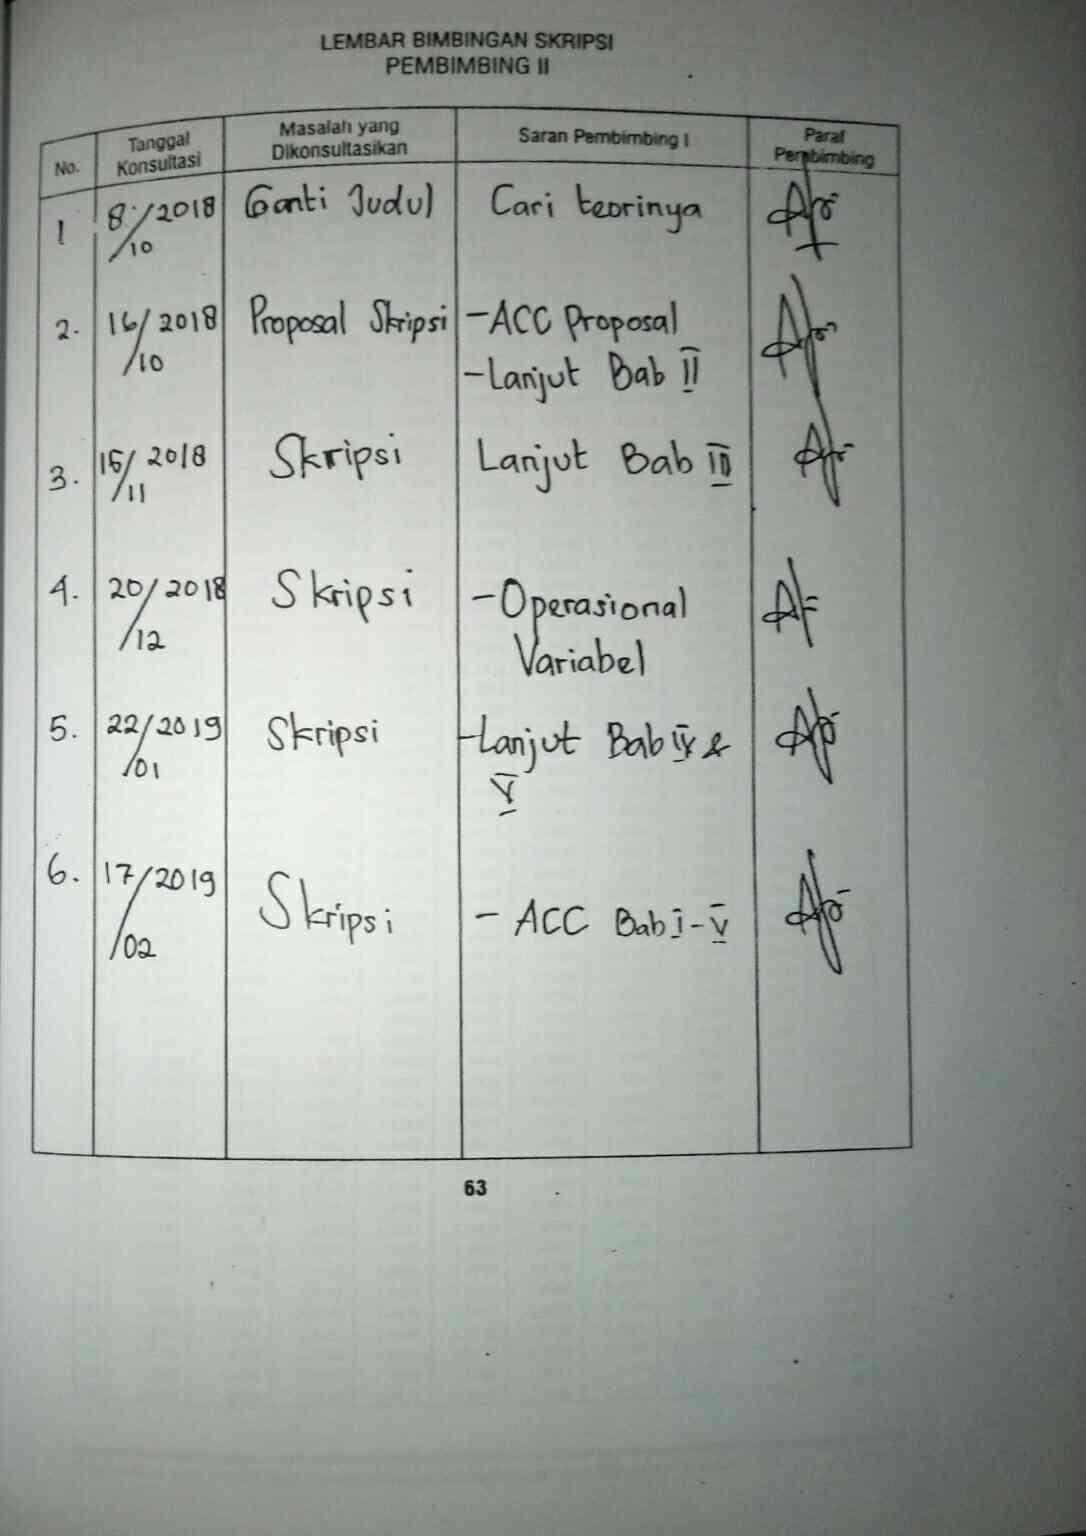 LEMBAR BIMBINGAN SKRIPSI
PEMBIMBING II
No. Tanggal Konsultasi Masalah yang Dikonsultasikan Saran Pembimbing I Paraf Pembimbing
1 8/10/2018 Ganti Judul Cari teorinya
2. 16/10/2018 Proposal Skripsi - ACC Proposal
- Lanjut Bab II
3. 15/11/2018 Skripsi Lanjut Bab III
4. 20/12/2018 Skripsi - Operasional
Variabel
5. 22/01/2019 Skripsi - Lanjut Bab IV &
V
6. 17/02/2019 Skripsi - ACC Bab I - V
63